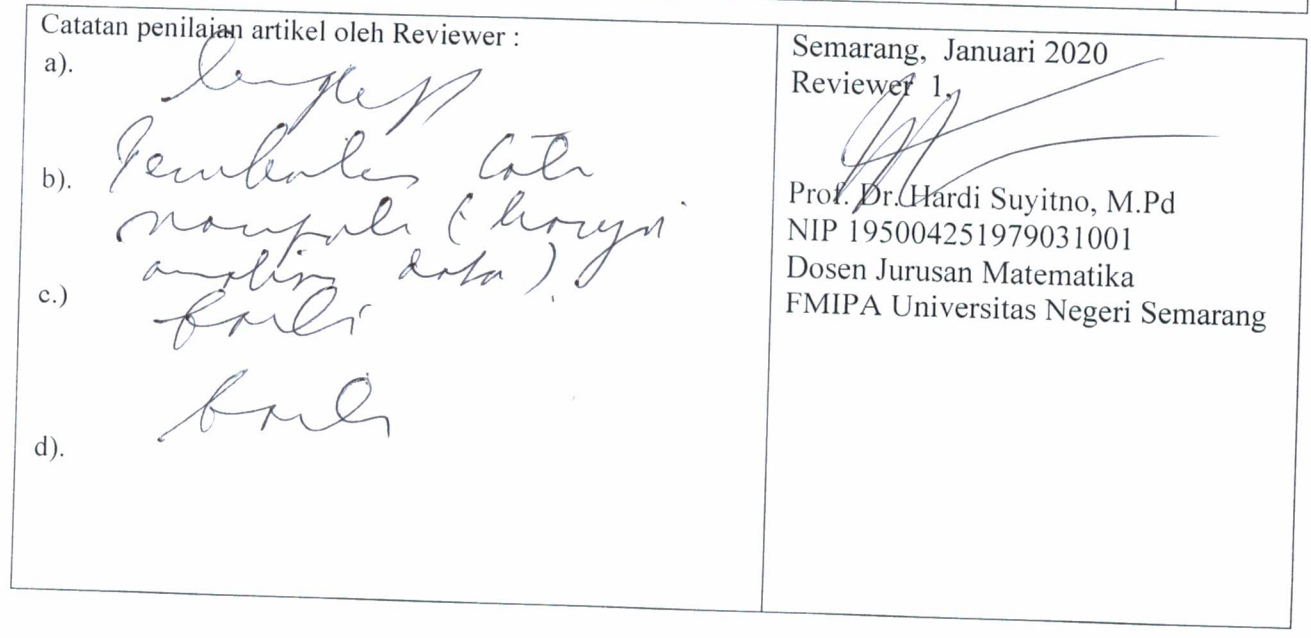 Catatan penilaian artikel oleh Reviewer :
a). lengkap
b).
(hanya
analisis data).
c.) baik
baik
d).
Semarang, Januari 2020
Reviewer 1,
Prof. Dr. Hardi Suyitno, M.Pd
NIP 195004251979031001
Dosen Jurusan Matematika
FMIPA Universitas Negeri Semarang